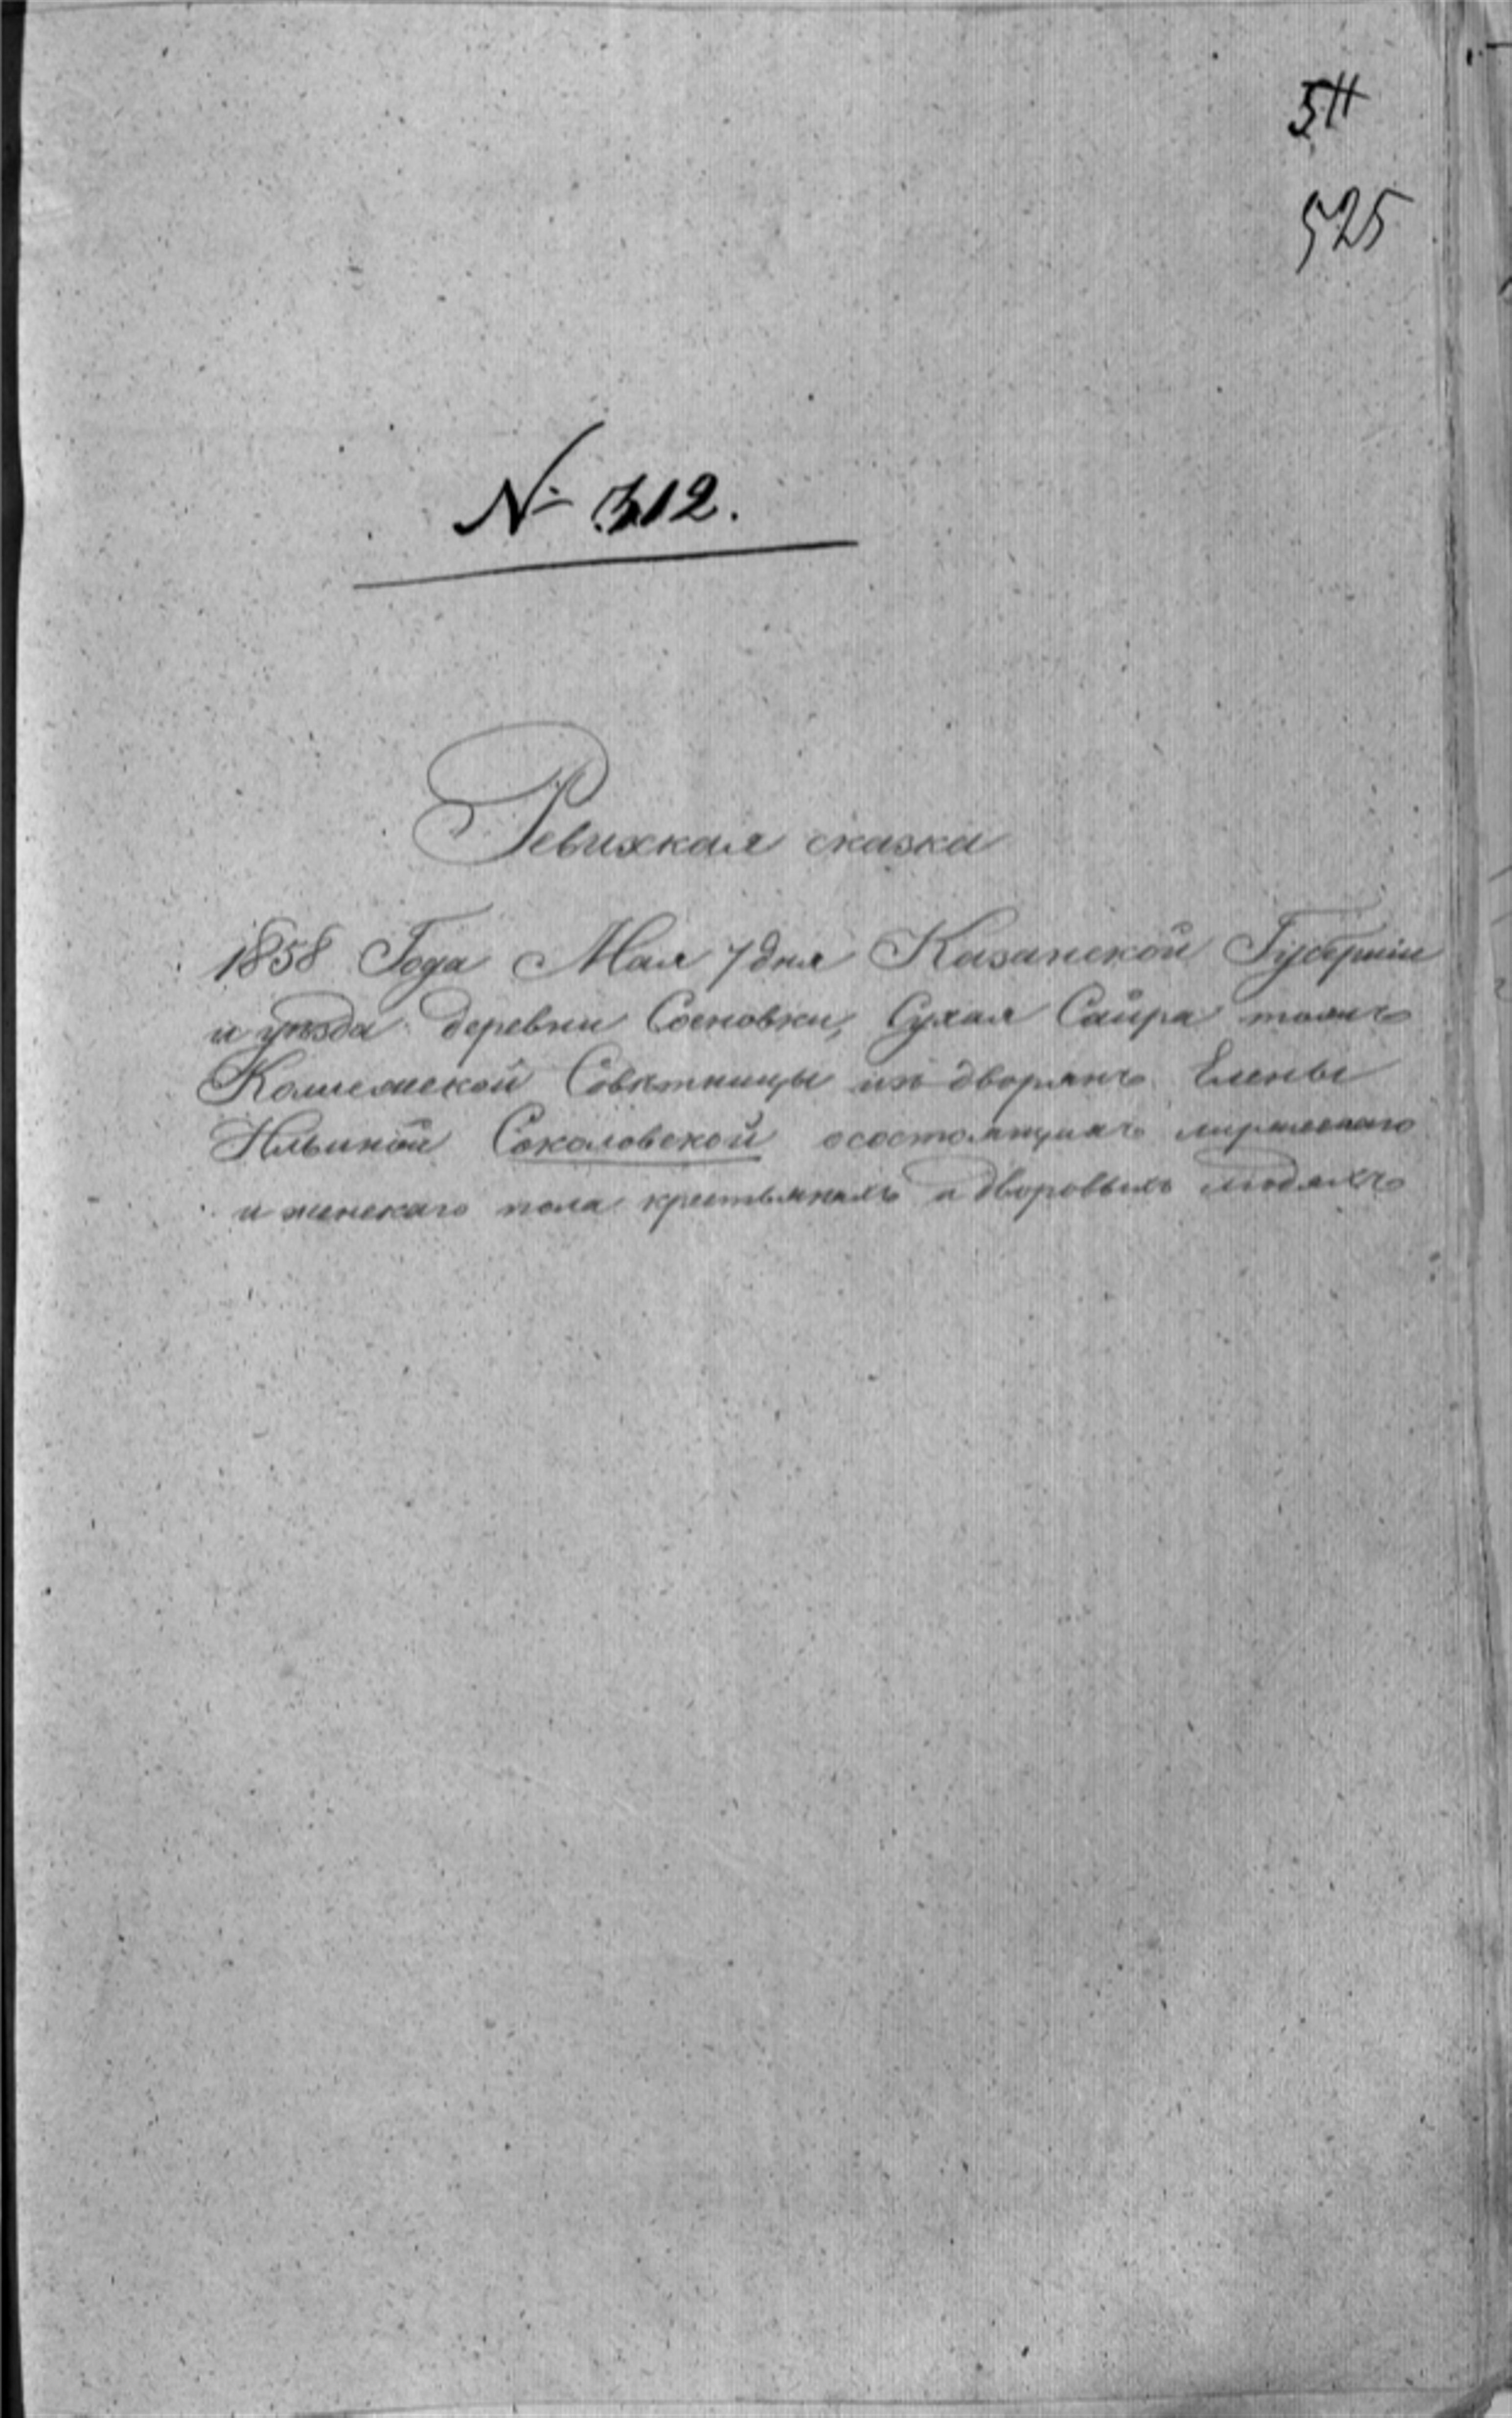 511
525
№ 312.
Ревизкая сказка
1858 Года Мая 7 дня Казанской Губерніи
и уѣзда деревни Сосновки, Сухая Саира тожъ
Колежской Совѣтницы изъ дворянъ Елены
Ильиной Соколовской осостоящихъ мужескаго
и женскаго пола крестьянахъ и дворовыхъ людяхъ